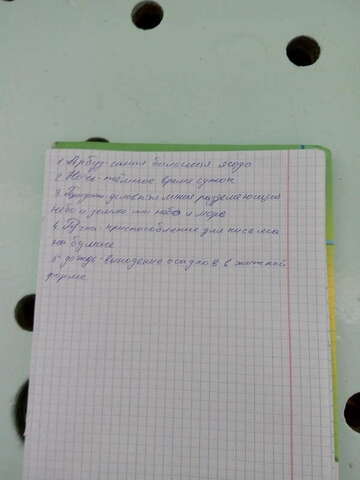 1. Арбуз-самая большая ягода
2. Ночь-тёмное время суток
3. условная линия разделяющая
небо и землю или небо и море
4. Ручка-приспособление для письма
на бумаге
5. дождь-выпадение осадков в жидкой
форме